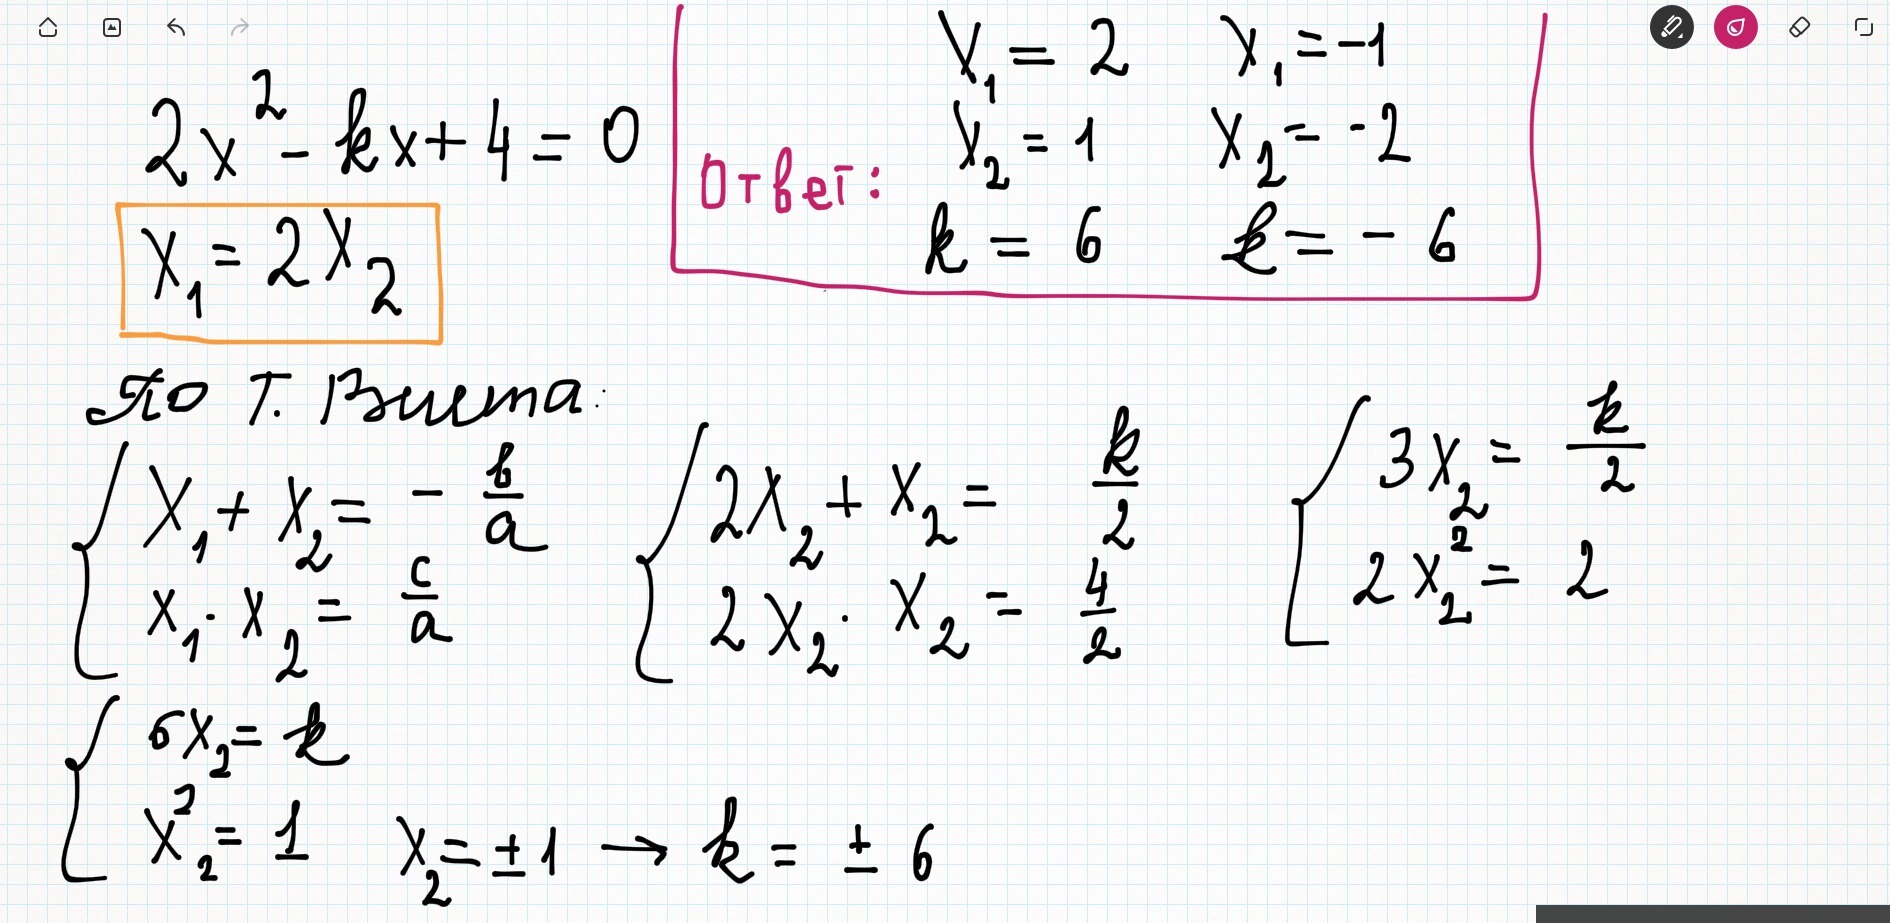 2x² - kx + 4 = 0
x₁ = 2x₂
Ответ:
x₁ = 2 x₁ = -1
x₂ = 1 x₂ = -2
k = 6 k = - 6
По Т. Виета:
x₁ + x₂ = - b/a
x₁ · x₂ = c/a
2x₂ + x₂ = k/2
2x₂ · x₂ = 4/2
3x₂ = k/2
2x₂² = 2
6x₂ = k
x₂² = 1 x₂ = ± 1 → k = ± 6